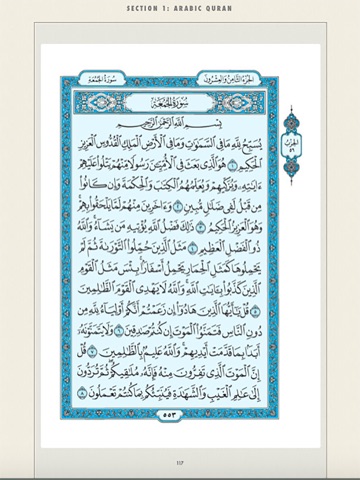 SECTION 1: ARABIC QURAN
الجزء الثامن والعشرون
سورة الجمعة
سُورَةُ الجُمُعَةِ
بِسْمِ ٱللَّهِ ٱلرَّحْمَٰنِ ٱلرَّحِيمِ
يُسَبِّحُ لِلَّهِ مَا فِى ٱلسَّمَٰوَٰتِ وَمَا فِى ٱلْأَرْضِ ٱلْمَلِكِ ٱلْقُدُّوسِ ٱلْعَزِيزِ
ٱلْحَكِيمِ ١ هُوَ ٱلَّذِى بَعَثَ فِى ٱلْأُمِّيِّۦنَ رَسُولًا مِّنْهُمْ يَتْلُوا۟ عَلَيْهِمْ
ءَايَٰتِهِۦ وَيُزَكِّيهِمْ وَيُعَلِّمُهُمُ ٱلْكِتَٰبَ وَٱلْحِكْمَةَ وَإِن كَانُوا۟
مِن قَبْلُ لَفِى ضَلَٰلٍ مُّبِينٍ ٢ وَءَاخَرِينَ مِنْهُمْ لَمَّا يَلْحَقُوا۟ بِهِمْ
وَهُوَ ٱلْعَزِيزُ ٱلْحَكِيمُ ٣ ذَٰلِكَ فَضْلُ ٱللَّهِ يُؤْتِيهِ مَن يَشَآءُ وَٱللَّهُ
ذُو ٱلْفَضْلِ ٱلْعَظِيمِ ٤ مَثَلُ ٱلَّذِينَ حُمِّلُوا۟ ٱلتَّوْرَىٰةَ ثُمَّ لَمْ
يَحْمِلُوهَا كَمَثَلِ ٱلْحِمَارِ يَحْمِلُ أَسْفَارًۢا بِئْسَ مَثَلُ ٱلْقَوْمِ
ٱلَّذِينَ كَذَّبُوا۟ بِـَٔايَٰتِ ٱللَّهِ وَٱللَّهُ لَا يَهْدِى ٱلْقَوْمَ ٱلظَّٰلِمِينَ
٥ قُلْ يَٰٓأَيُّهَا ٱلَّذِينَ هَادُوٓا۟ إِن زَعَمْتُمْ أَنَّكُمْ أَوْلِيَآءُ لِلَّهِ مِن
دُونِ ٱلنَّاسِ فَتَمَنَّوُا۟ ٱلْمَوْتَ إِن كُنتُمْ صَٰدِقِينَ ٦ وَلَا يَتَمَنَّوْنَهُۥٓ
أَبَدًۢا بِمَا قَدَّمَتْ أَيْدِيهِمْ وَٱللَّهُ عَلِيمٌۢ بِٱلظَّٰلِمِينَ ٧ قُلْ
إِنَّ ٱلْمَوْتَ ٱلَّذِى تَفِرُّونَ مِنْهُ فَإِنَّهُۥ مُلَٰقِيكُمْ ثُمَّ تُرَدُّونَ
إِلَىٰ عَٰلِمِ ٱلْغَيْبِ وَٱلشَّهَٰدَةِ فَيُنَبِّئُكُم بِمَا كُنتُمْ تَعْمَلُونَ ٨
الحزب
٥٦
٥٥٣
117